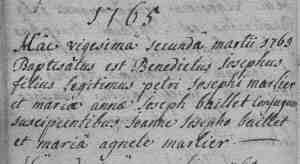 1765
Hâc vigesimâ secundâ martii 1765
Baptisatus est Benedictus Josephus
filius legitimus petri Josephi marlier
et mariæ annæ Joseph baillet conjugum
suscipientibus Joanne Josepho baillet
et mariâ agnete marlier